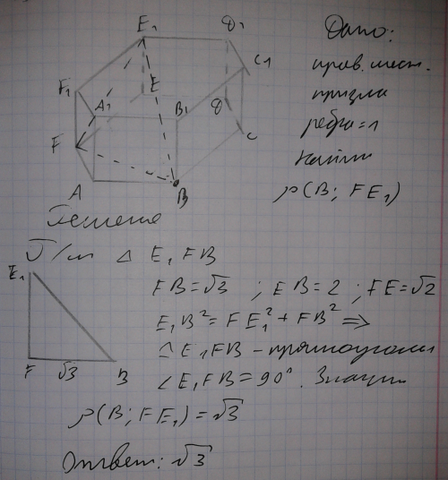 E₁ D₁ C₁
F₁ A₁ E B₁ D
F C
A B
Дано:
прав. шест.
призма
ребро=1
Найти
ρ(B; FE₁)
Решение
Р/м △ E₁FB
E₁
F √3 B
FB=√3 ; EB=2 ; FE=√2
E₁B²=FE₁²+FB² ⇒
△E₁FB – прямоугольн
∠E₁FB=90°. Значит
ρ(B; FE₁)=√3
Ответ: √3